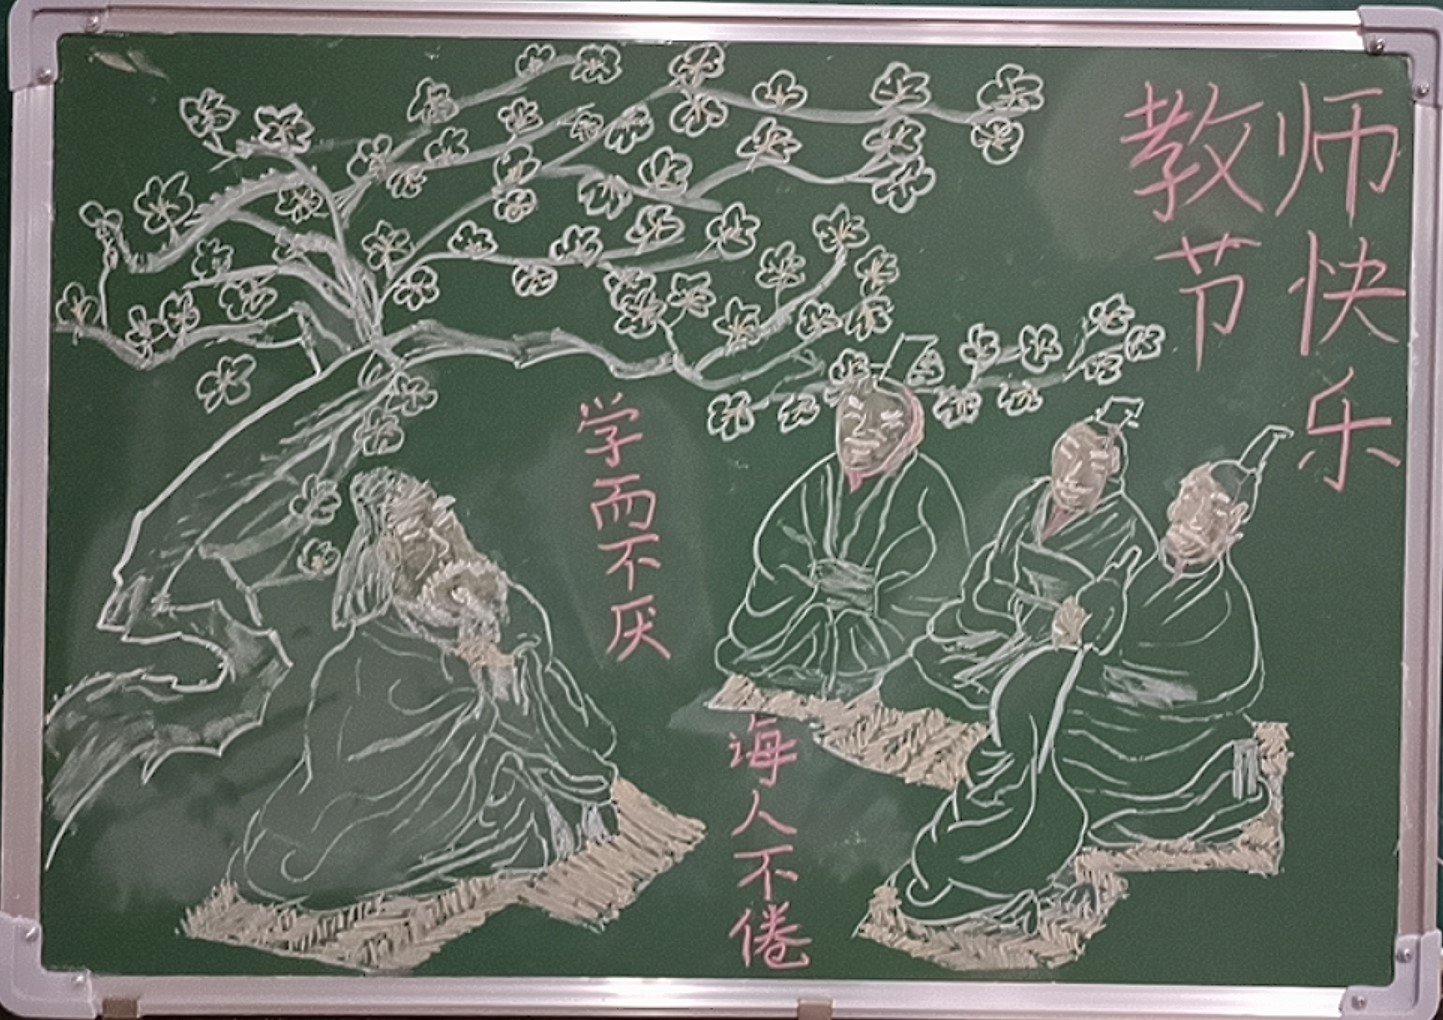 教师
节快
乐
学而不厌
诲人不倦